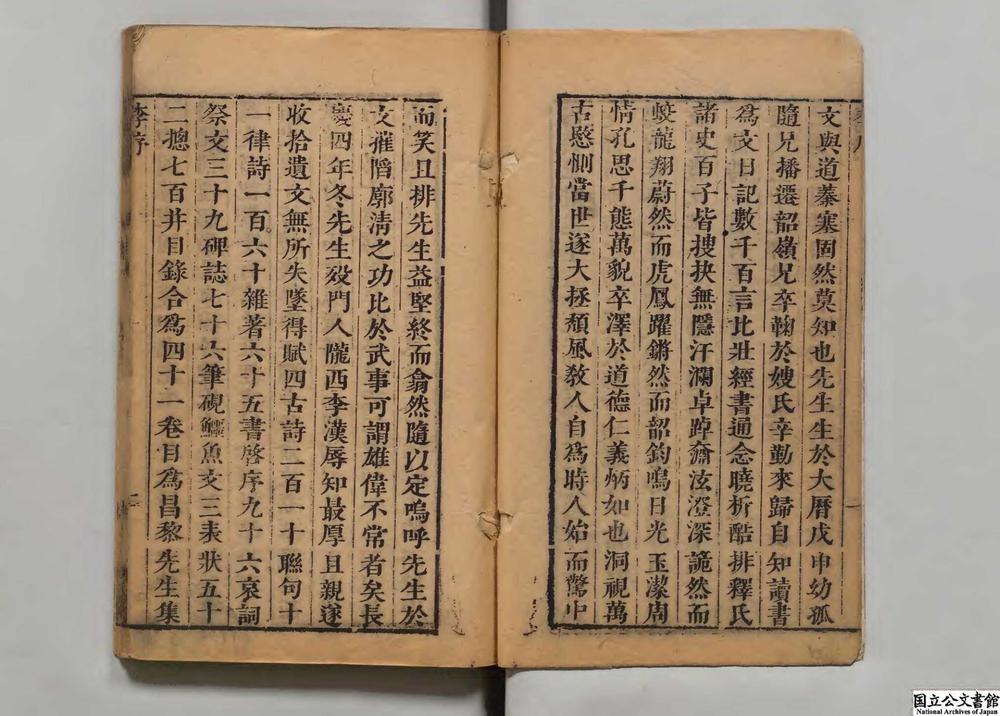 文與道蓁塞固然莫知也先生生於大曆戊申幼孤
隨兄播遷韶嶺兄卒鞠於嫂氏辛勤來歸自知讀書
爲文日記數千百言比壯經書通念曉析酷排釋氏
諸史百子皆搜抉無隱汗瀾卓踔奫泫澄深詭然而
蛟龍翔蔚然而虎鳳躍鏘然而韶鈞鳴日光玉潔周
情孔思千態萬貌卒澤於道德仁義炳如也洞視萬
古愍惻當世遂大拯頹風敎人自爲時人始而驚中
而笑且排先生益堅終而翕然隨以定嗚呼先生於
文摧䧟廓淸之功比於武事可謂雄偉不常者矣長
慶四年冬先生歿門人隴西李漢辱知最厚且親遂
收拾遺文無所失墜得賦四古詩二百一十聯句十
一律詩一百六十雜著六十五書啓序九十六哀詞
祭文三十九碑誌七十六筆硯鱷魚文三表狀五十
二摠七百幷目錄合爲四十一卷目爲昌黎先生集
李序
二
国立公文書館
National Archives of Japan